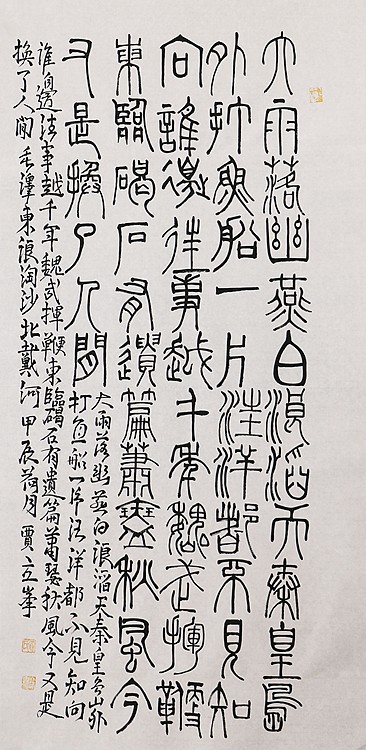 大雨落幽燕白浪滔天秦皇島
外打魚船一片汪洋都不見知
向誰邊往事越千年魏武揮鞭
東臨碣石有遺篇蕭瑟秋風今
又是換了人間
大雨落幽燕白浪滔天秦皇島外
打魚船一片汪洋都不見知向
誰邊往事越千年魏武揮鞭東臨碣石有遺篇蕭瑟秋風今又是
換了人間毛澤東浪淘沙北戴河甲辰荷月賈立峯